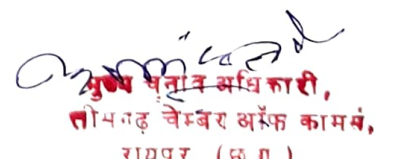 मुख्य चुनाव अधिकारी,
चेम्बर ऑफ कामर्स,
रायपुर (छ.ग.)